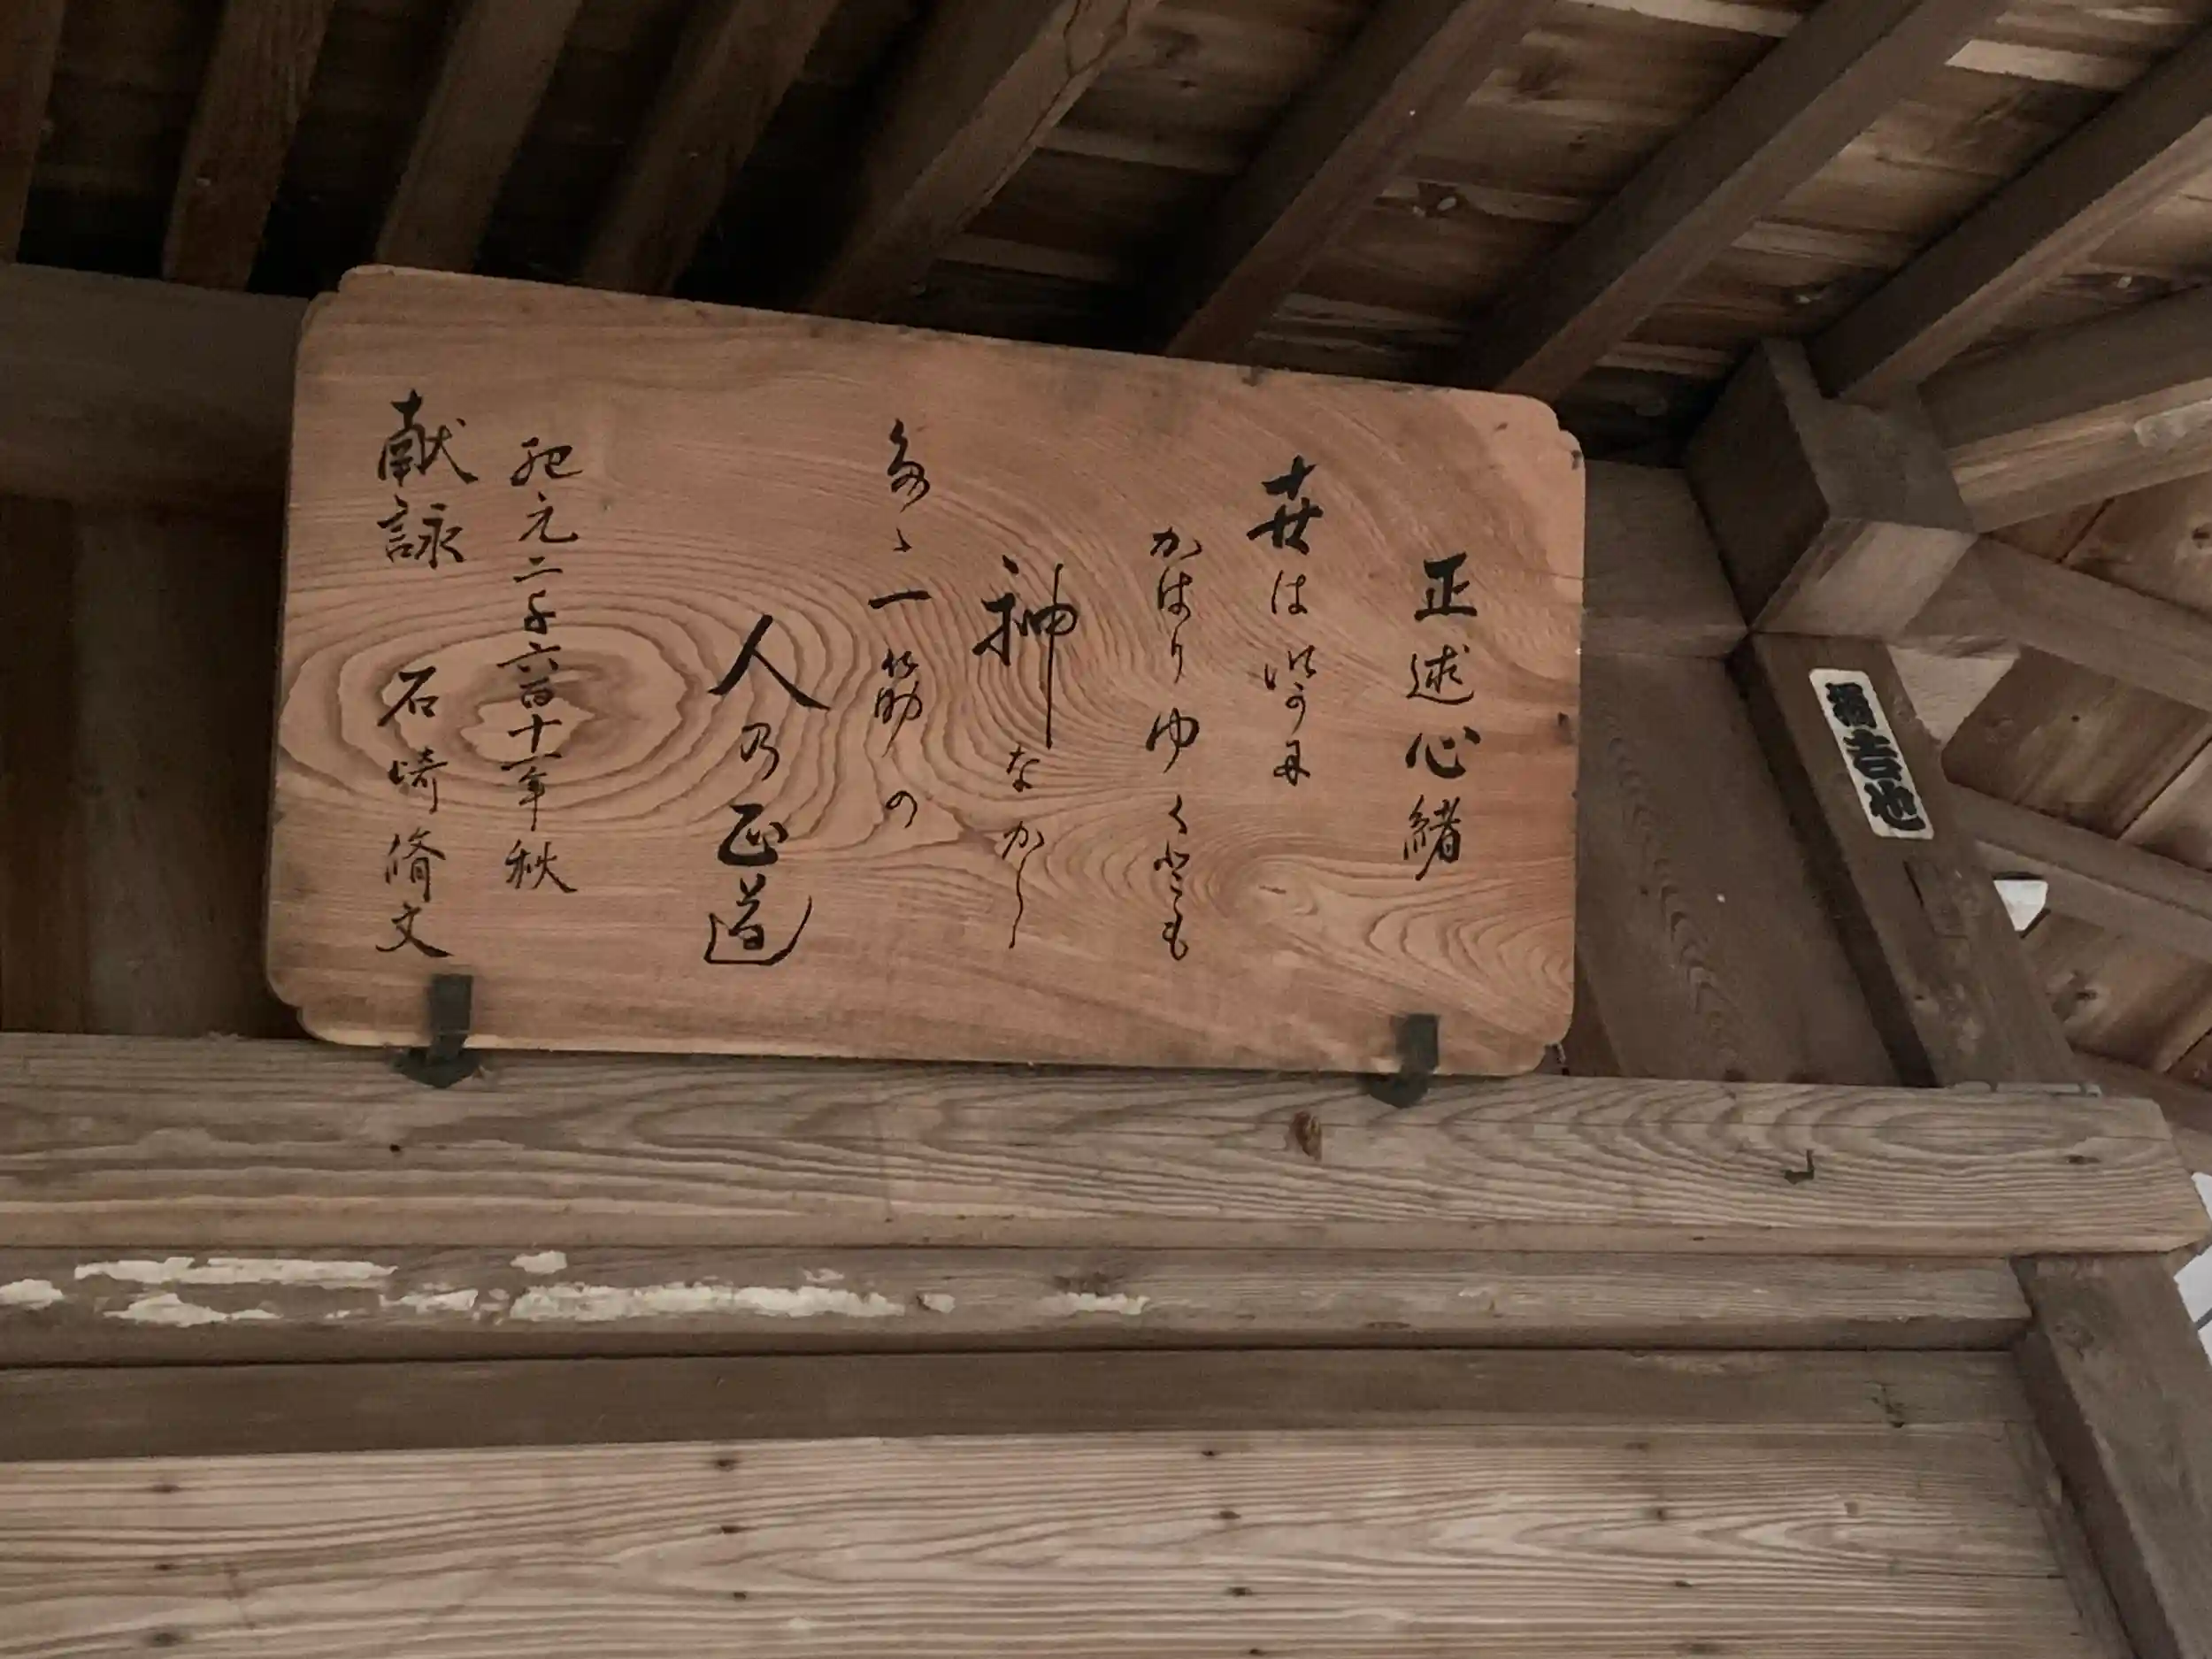 正述心緒
世はいかに
かはりゆくとも
神ながら
多ゝ一筋の
人乃正道
紀元二千六百十一年秋
献詠 石崎脩文